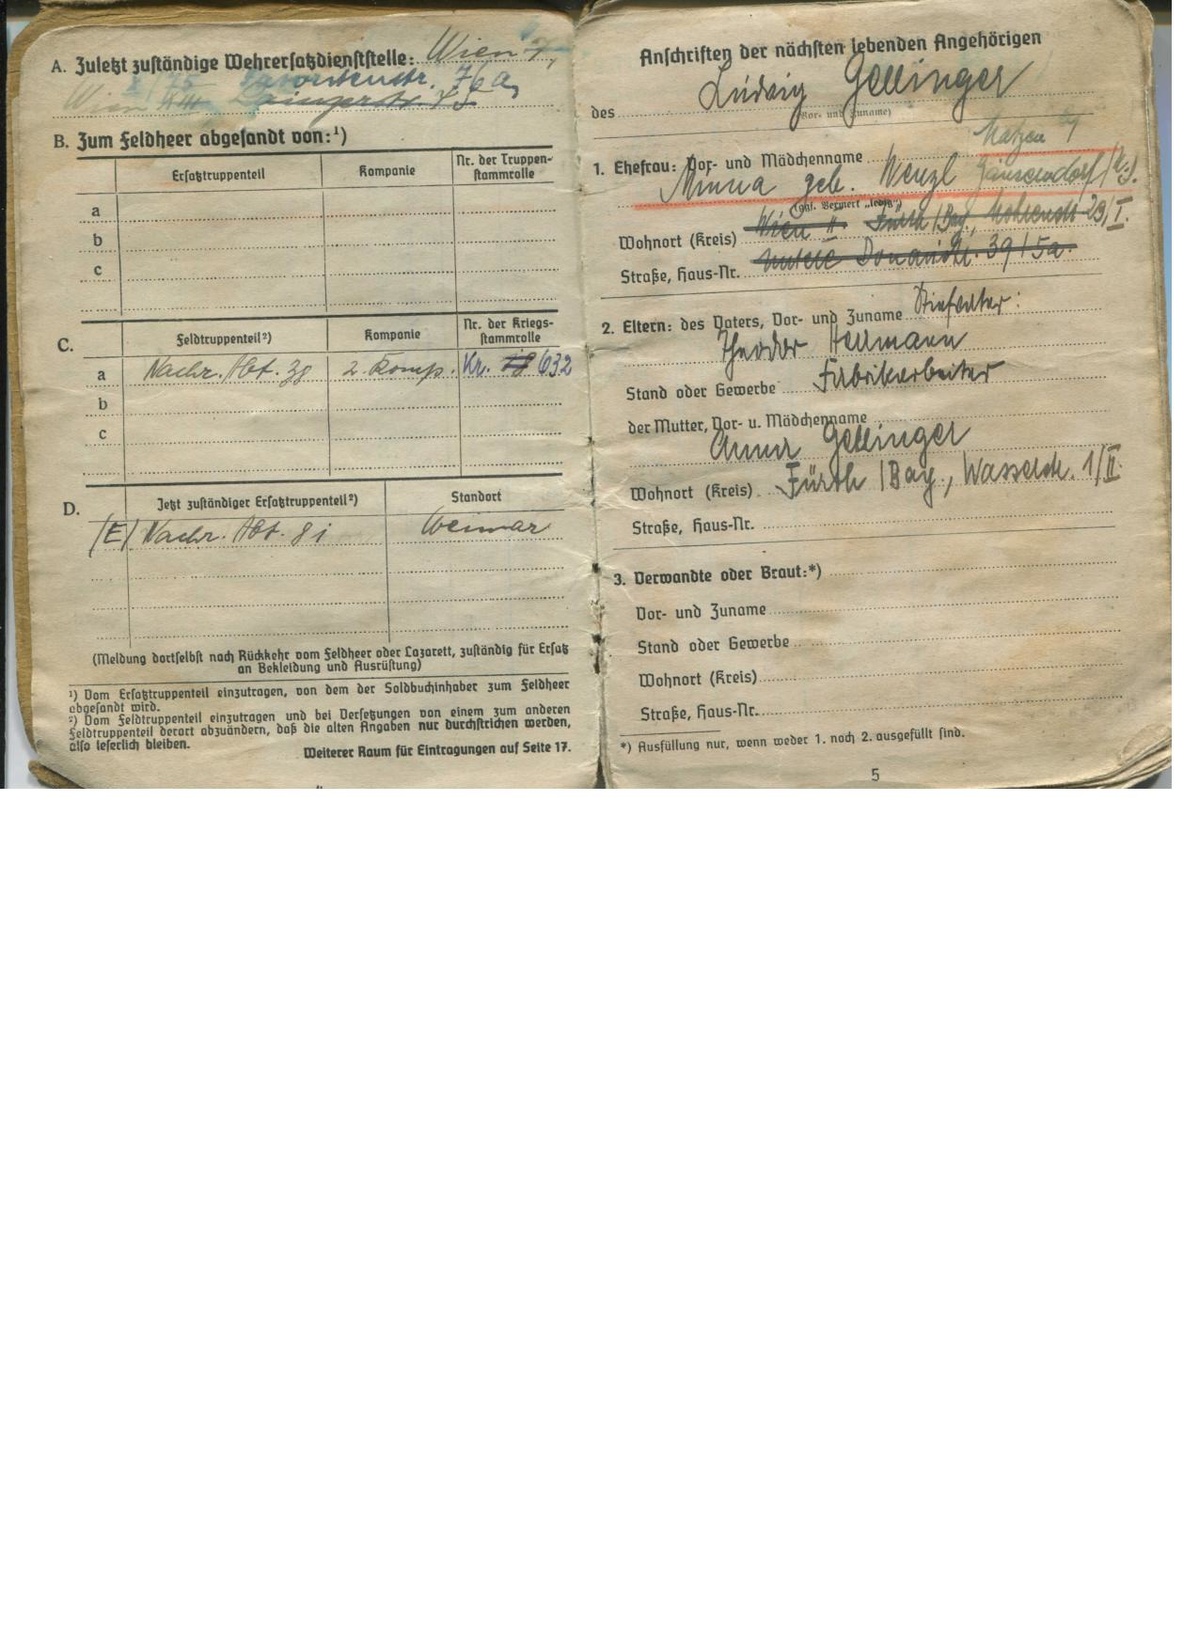 A. Zuletzt zuständige Wehrersatzdienststelle: Wien
76a,
Wien
B. Zum Feldheer abgesandt von:¹)
Ersatztruppenteil Kompanie Nr. der Truppen-
stammrolle
a
b
c
C. Feldtruppenteil²) Kompanie Nr. der Kriegs-
stammrolle
a Nachr. Abt. 38 2. Komp. Kr. 632
b
c
D. Jetzt zuständiger Ersatztruppenteil²) Standort
(E) Nachr. Abt. 81 Weimar
(Meldung dortselbst nach Rückkehr vom Feldheer oder Lazarett, zuständig für Ersatz
an Bekleidung und Ausrüstung)
¹) Vom Ersatztruppenteil einzutragen, von dem der Soldbuchinhaber zum Feldheer
abgesandt wird.
²) Vom Feldtruppenteil einzutragen und bei Versetzungen von einem zum anderen
Feldtruppenteil derart abzuändern, daß die alten Angaben nur durchstrichen werden,
also leserlich bleiben.
Weiterer Raum für Eintragungen auf Seite 17.
Anschriften der nächsten lebenden Angehörigen
des Ludwig Gellinger
(Vor- und Zuname)
Matzen
1. Ehefrau: Vor- und Mädchenname
Minna geb. Wenzl Gänserndorf
(ggf. Vermerk „ledig“)
Wohnort (Kreis) Wien II Fürth /Bay., 29/I.
Straße, Haus-Nr. Untere Donaustr. 39/5a.
2. Eltern: des Vaters, Vor- und Zuname Stiefvater:
Theodor Hellmann
Stand oder Gewerbe Fabrikarbeiter
der Mutter, Vor- u. Mädchenname
Anna Gellinger
Wohnort (Kreis) Fürth /Bay., Wasserstr. 1/II.
Straße, Haus-Nr.
3. Verwandte oder Braut:*)
Vor- und Zuname
Stand oder Gewerbe
Wohnort (Kreis)
Straße, Haus-Nr.
*) Ausfüllung nur, wenn weder 1. noch 2. ausgefüllt sind.
5